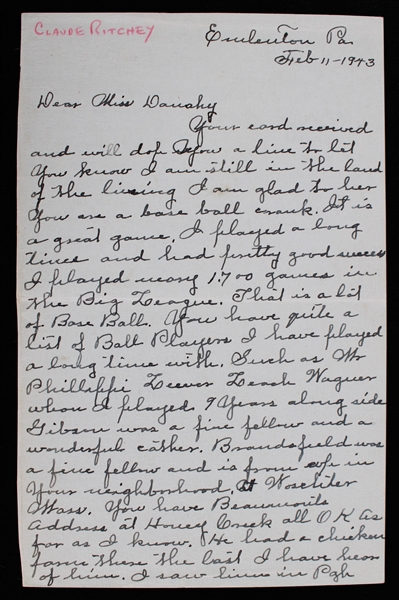 CLAUDE RITCHEY
Emlenton Pa
Feb 11-1943
Dear Miss
Your card received
and will drop you a line to let
You know I am still in the land
of the living I am glad to her
You are a base ball crank. It is
a great game. I played a long
time and had pretty good success
I played neary 1700 games in
the Big League. That is a lot
of Base Ball. You have quite a
list of Ball Players I have played
a long time with. Such as Mr
Phillippi Leever Leach Wagner
whom I played 9 Years along side
Gibson was a fine fellow and a
wonderful cather. Brandsfield was
a fine fellow and is from up in
Your neighborhood at
Mass. You have Beaumonts
Address at Honey Creek all O K As
far as I know. He had a chicken
farm there the last I have hear
of him. I saw him in Pgh